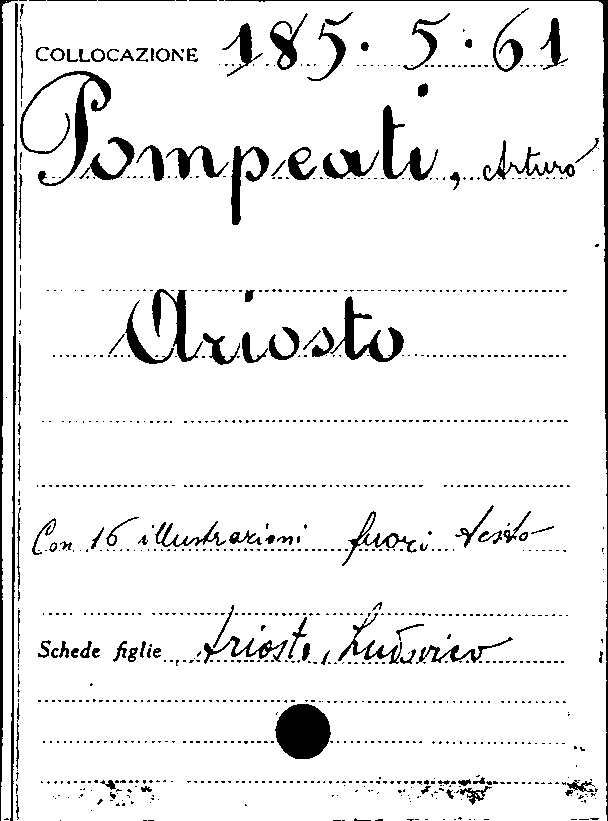 COLLOCAZIONE 185. 5. 61
Pompeati, Arturo
Ariosto
Con 16 illustrazioni fuori testo
Schede figlie Ariosto, Ludovico